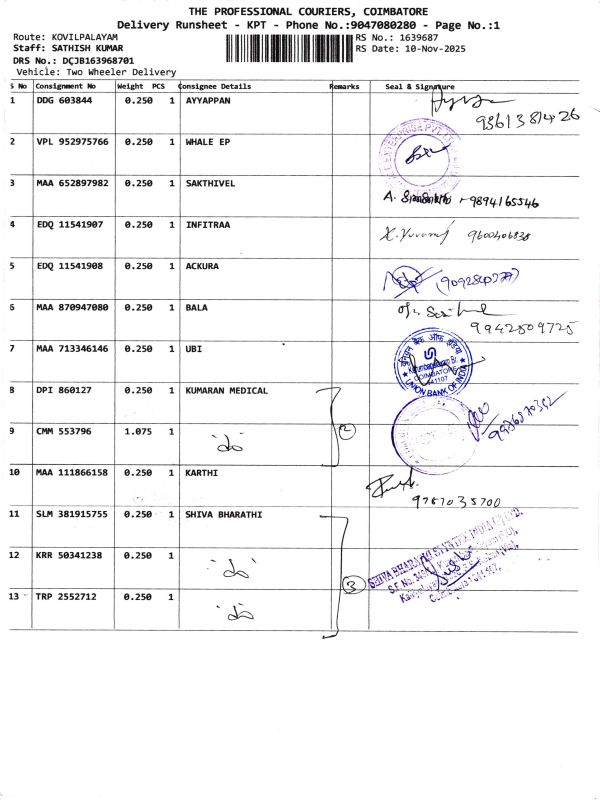 THE PROFESSIONAL COURIERS, COIMBATORE
Delivery Runsheet - KPT - Phone No.:9047080280 - Page No.:1
Route: KOVILPALAYAM
RS No.: 1639687
Staff: SATHISH KUMAR
RS Date: 10-Nov-2025
DRS No.: DCJB163968701
Vehicle: Two Wheeler Delivery
S No Consignment No Weight PCS Consignee Details Remarks Seal & Signature
1 DDG 603844 0.250 1 AYYAPPAN
2 VPL 952975766 0.250 1 WHALE EP
3 MAA 652897982 0.250 1 SAKTHIVEL
A. 9894165546
4 EDQ 11541907 0.250 1 INFITRAA
9600406838
5 EDQ 11541908 0.250 1 ACKURA
6 MAA 870947080 0.250 1 BALA
9942809725
7 MAA 713346146 0.250 1 UBI
यूनियन बैंक ऑफ इंडिया
COIMBATORE
641107
UNION BANK OF INDIA
8 DPI 860127 0.250 1 KUMARAN MEDICAL
2
9 CMM 553796 1.075 1 "do"
10 MAA 111866158 0.250 1 KARTHI
9787035700
11 SLM 381915755 0.250 1 SHIVA BHARATHI
12 KRR 50341238 0.250 1 "do"
3
13 TRP 2552712 0.250 1 "do"